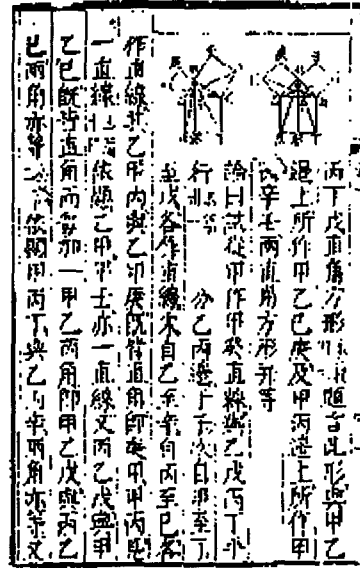 丙丁戊直角方形 題言此形與甲乙
邊上所作甲乙己庚及甲丙邊上所作甲
辛壬兩直角方形并等
論曰試從甲作甲癸直線與乙戊丙丁平
行 分乙丙邊于子次自甲至丁
至戊各作直線末自乙至辛自丙至己各
作直線其乙甲丙與乙甲庚既皆直角即庚甲甲丙是
一直線 依顯乙甲甲壬亦一直線又丙乙戊與甲
乙己既皆直角而每加一甲乙丙角即甲乙戊與丙乙
己兩角亦等 依顯甲丙丁與乙丙辛兩角亦等又